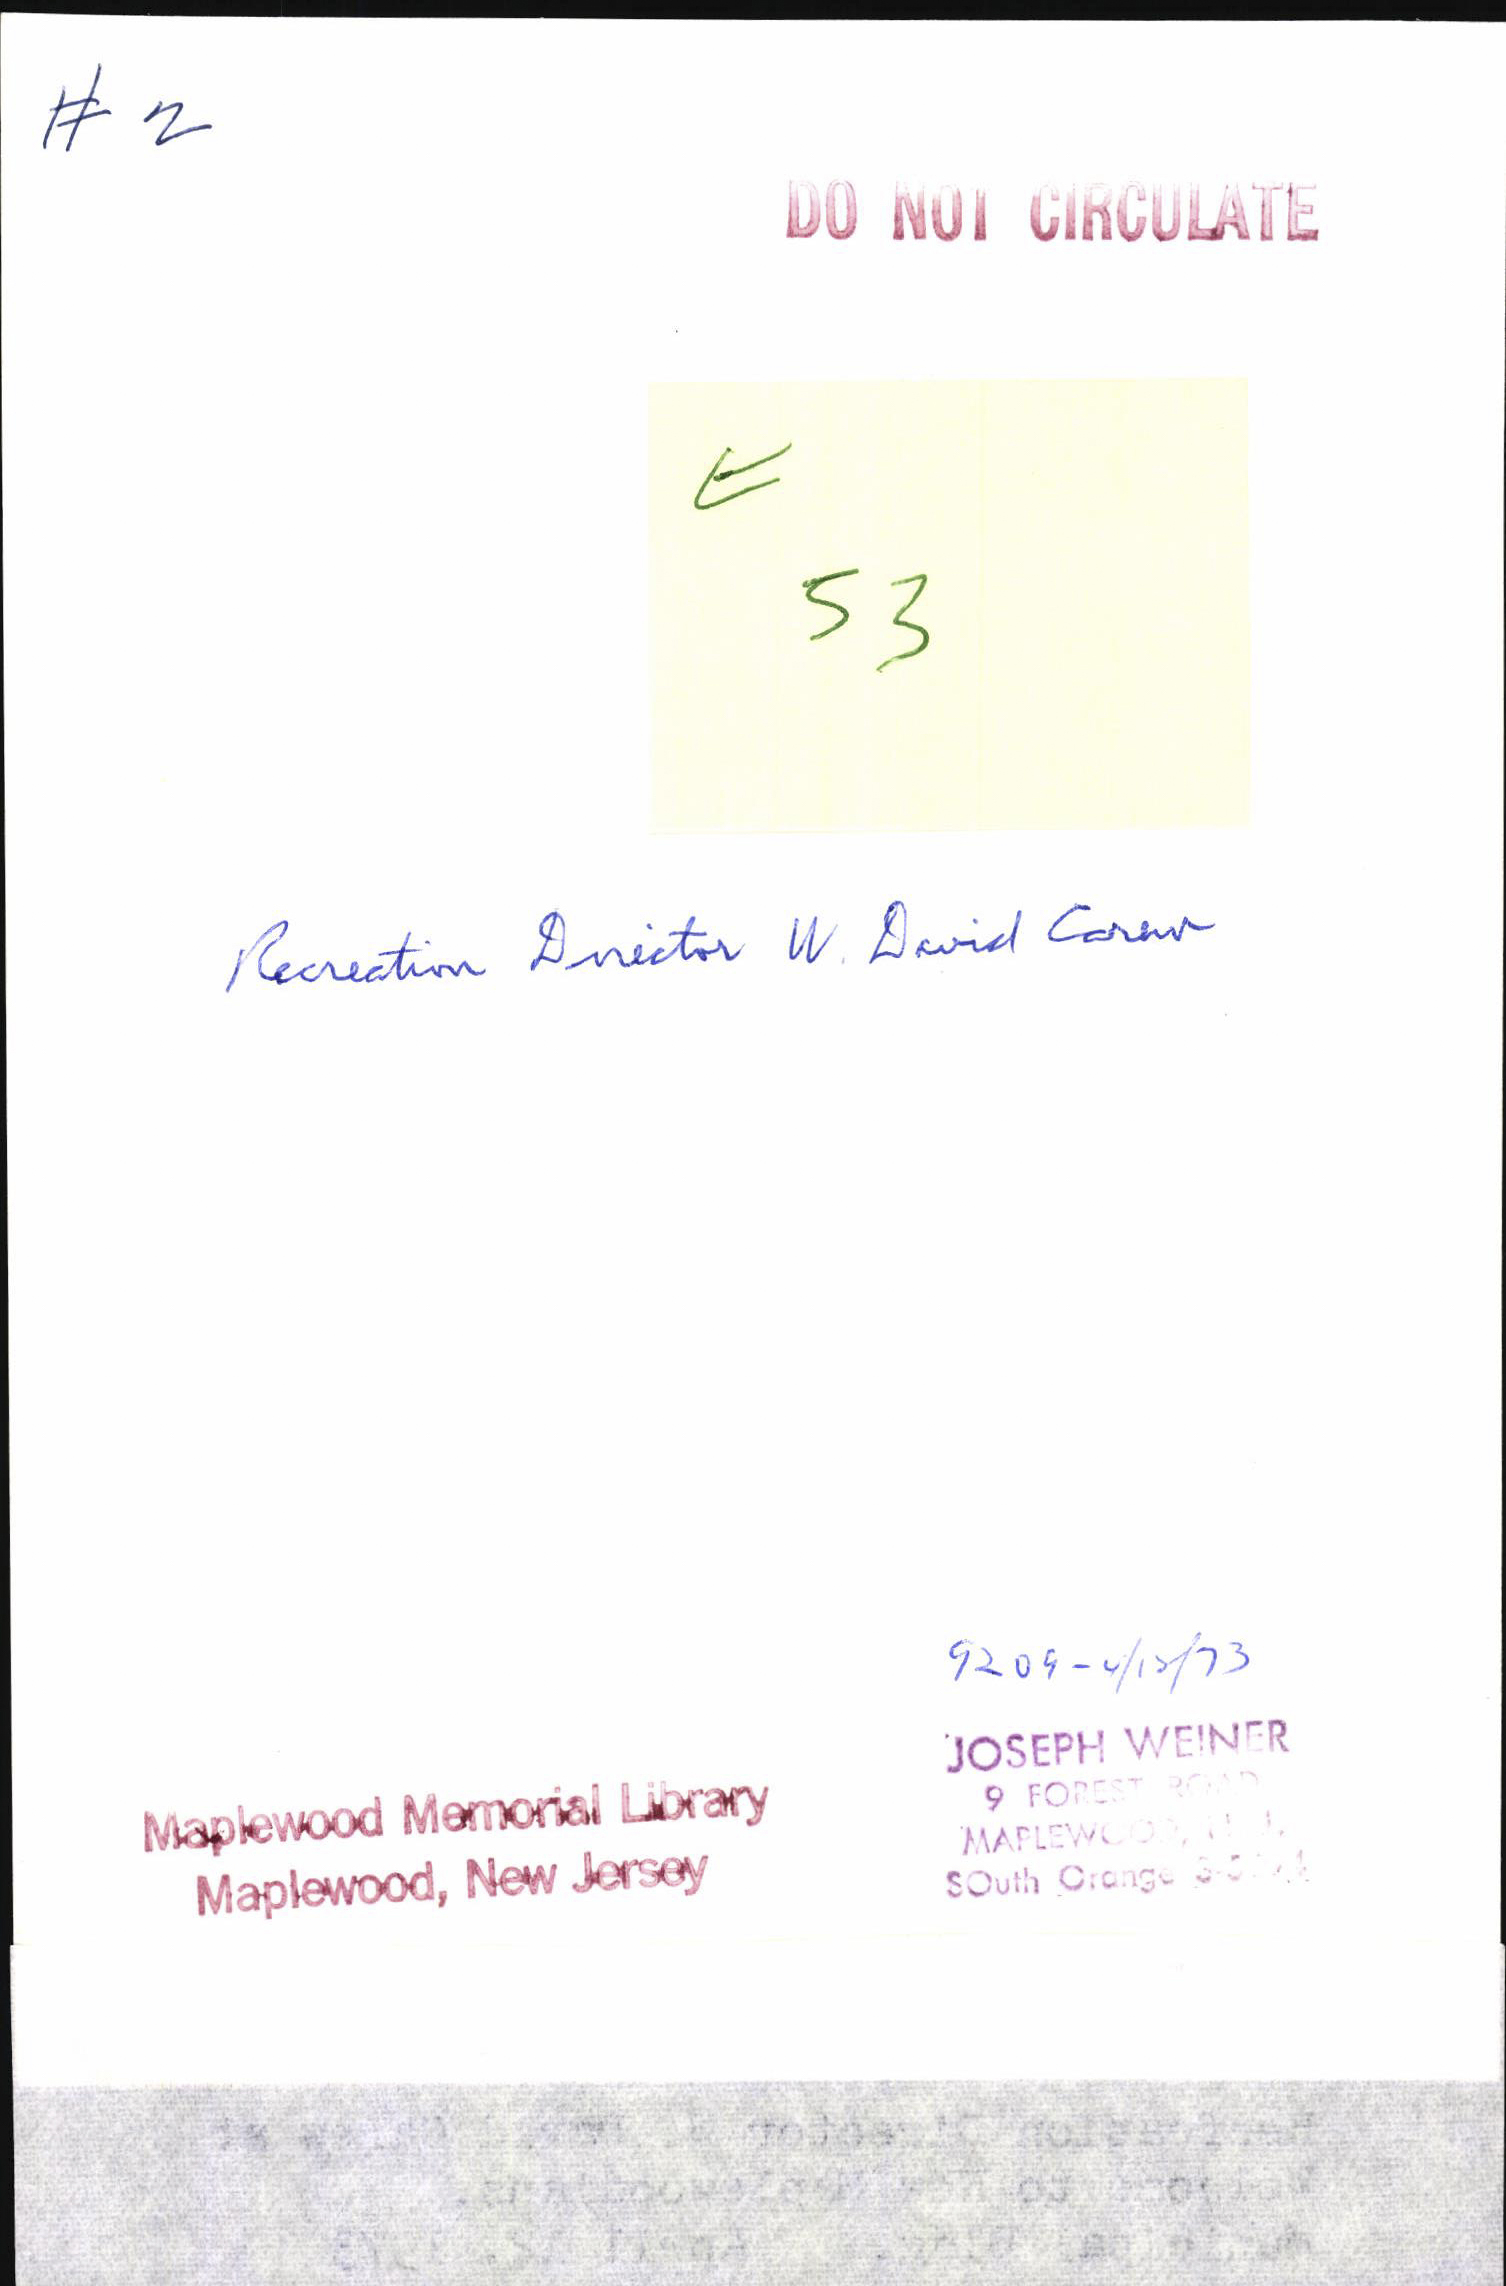 # 2
DO NOT CIRCULATE
E
53
Recreation Director W. David Carew
9209-4/12/73
JOSEPH WEINER
9 FOREST ROAD
MAPLEWOOD, N. J.
SOuth Orange
Maplewood Memorial Library
Maplewood, New Jersey